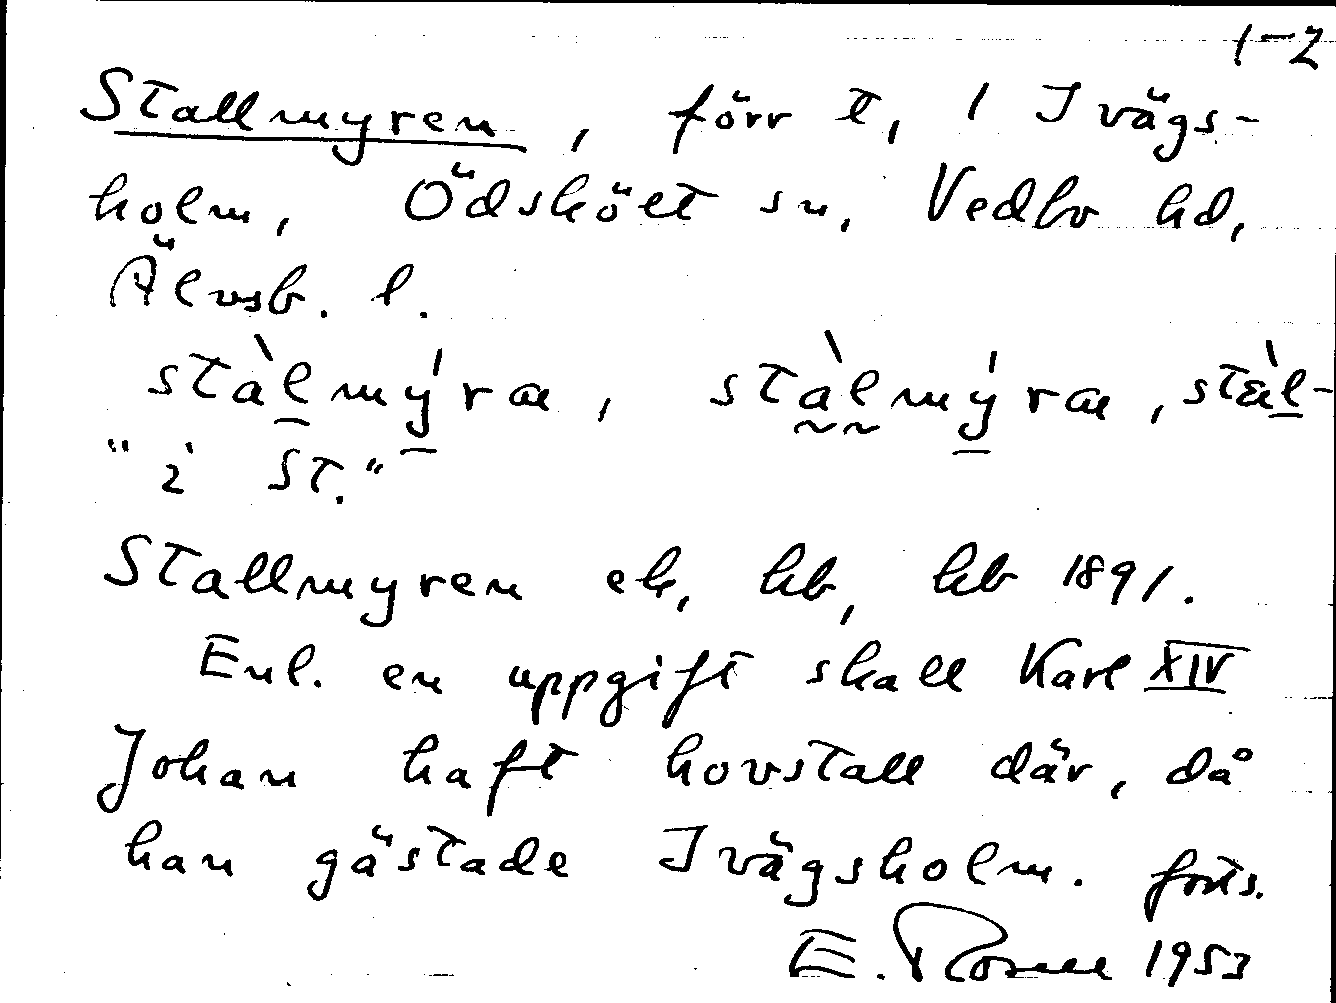 1-2
Stallmyren, förr t, 1 Ivägs-
holm, Ödskölt sn, Vedbo hd,
Älvsb. l.
stàlmýræ, stàlmýræ, stæ̀l-
"i St."
Stallmyren ek, hb, hb 1891.
Enl. en uppgift skall Karl XIV
Johan haft hovstall där, då
han gästade Ivägsholm. forts.
E. 1953